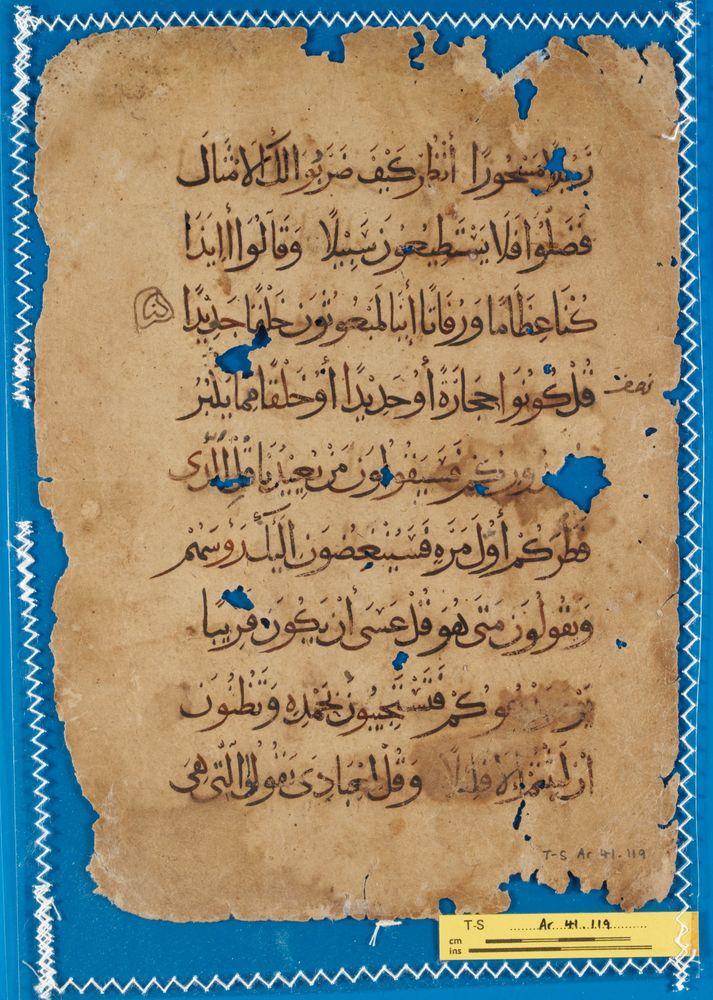 رَجُلًا مَسْحُورًا أنْظُرْ كَيْفَ ضَرَبُوا لَكَ الْامْثَالَ
فَضَلُّوا فَلَا يَسْتَطِيعُونَ سَبِيلًا وَقَالُوا أَاِيذَا
كُنَّا عِظَامًا وَرُفَاتًا أَإِنَّا لَمَبْعُوثُونَ خَلْقًا جَدِيدًا
قُلْ كُونُوا حِجَارَةً أَوْ حَدِيدًا أَوْ خَلْقًا مِمَّا يَكْبُرُ
نصف
صُدُورِكُمْ فَسَيَقُولُونَ مَنْ يُعِيدُنَا قُلِ الَّذِى
فَطَرَكُمْ أَوَّلَ مَرَّةٍ فَسَيُنْغِضُونَ الَيْكَ رُؤُسَهُمْ
وَيَقُولُونَ مَتَى هُوَ قُلْ عَسَى أَنْ يَكُونَ قَرِيبًا
يَوْمَ يَدْعُوكُمْ فَتَسْتَجِيبُونَ بِحَمْدِهِ وَتَظُنُّونَ
انْ لَبِثْتُمْ الَّا قَلِيلًا وَقُلْ لِعِبَادِىَ يَقُولُوا الَّتِى هِىَ
T-S Ar 41.119
T-S Ar. 41.119
cm
ins